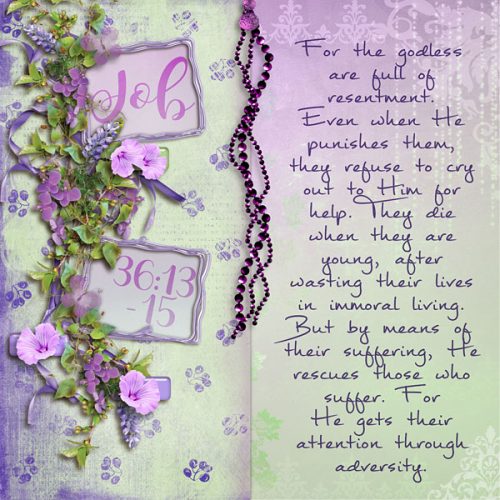 Job
36:13
-15
For the godless
are full of
resentment.
Even when He
punishes them,
they refuse to cry
out to Him for
help. They die
when they are
young, after
wasting their lives
in immoral living.
But by means of
their suffering, He
rescues those who
suffer. For
He gets their
attention through
adversity.